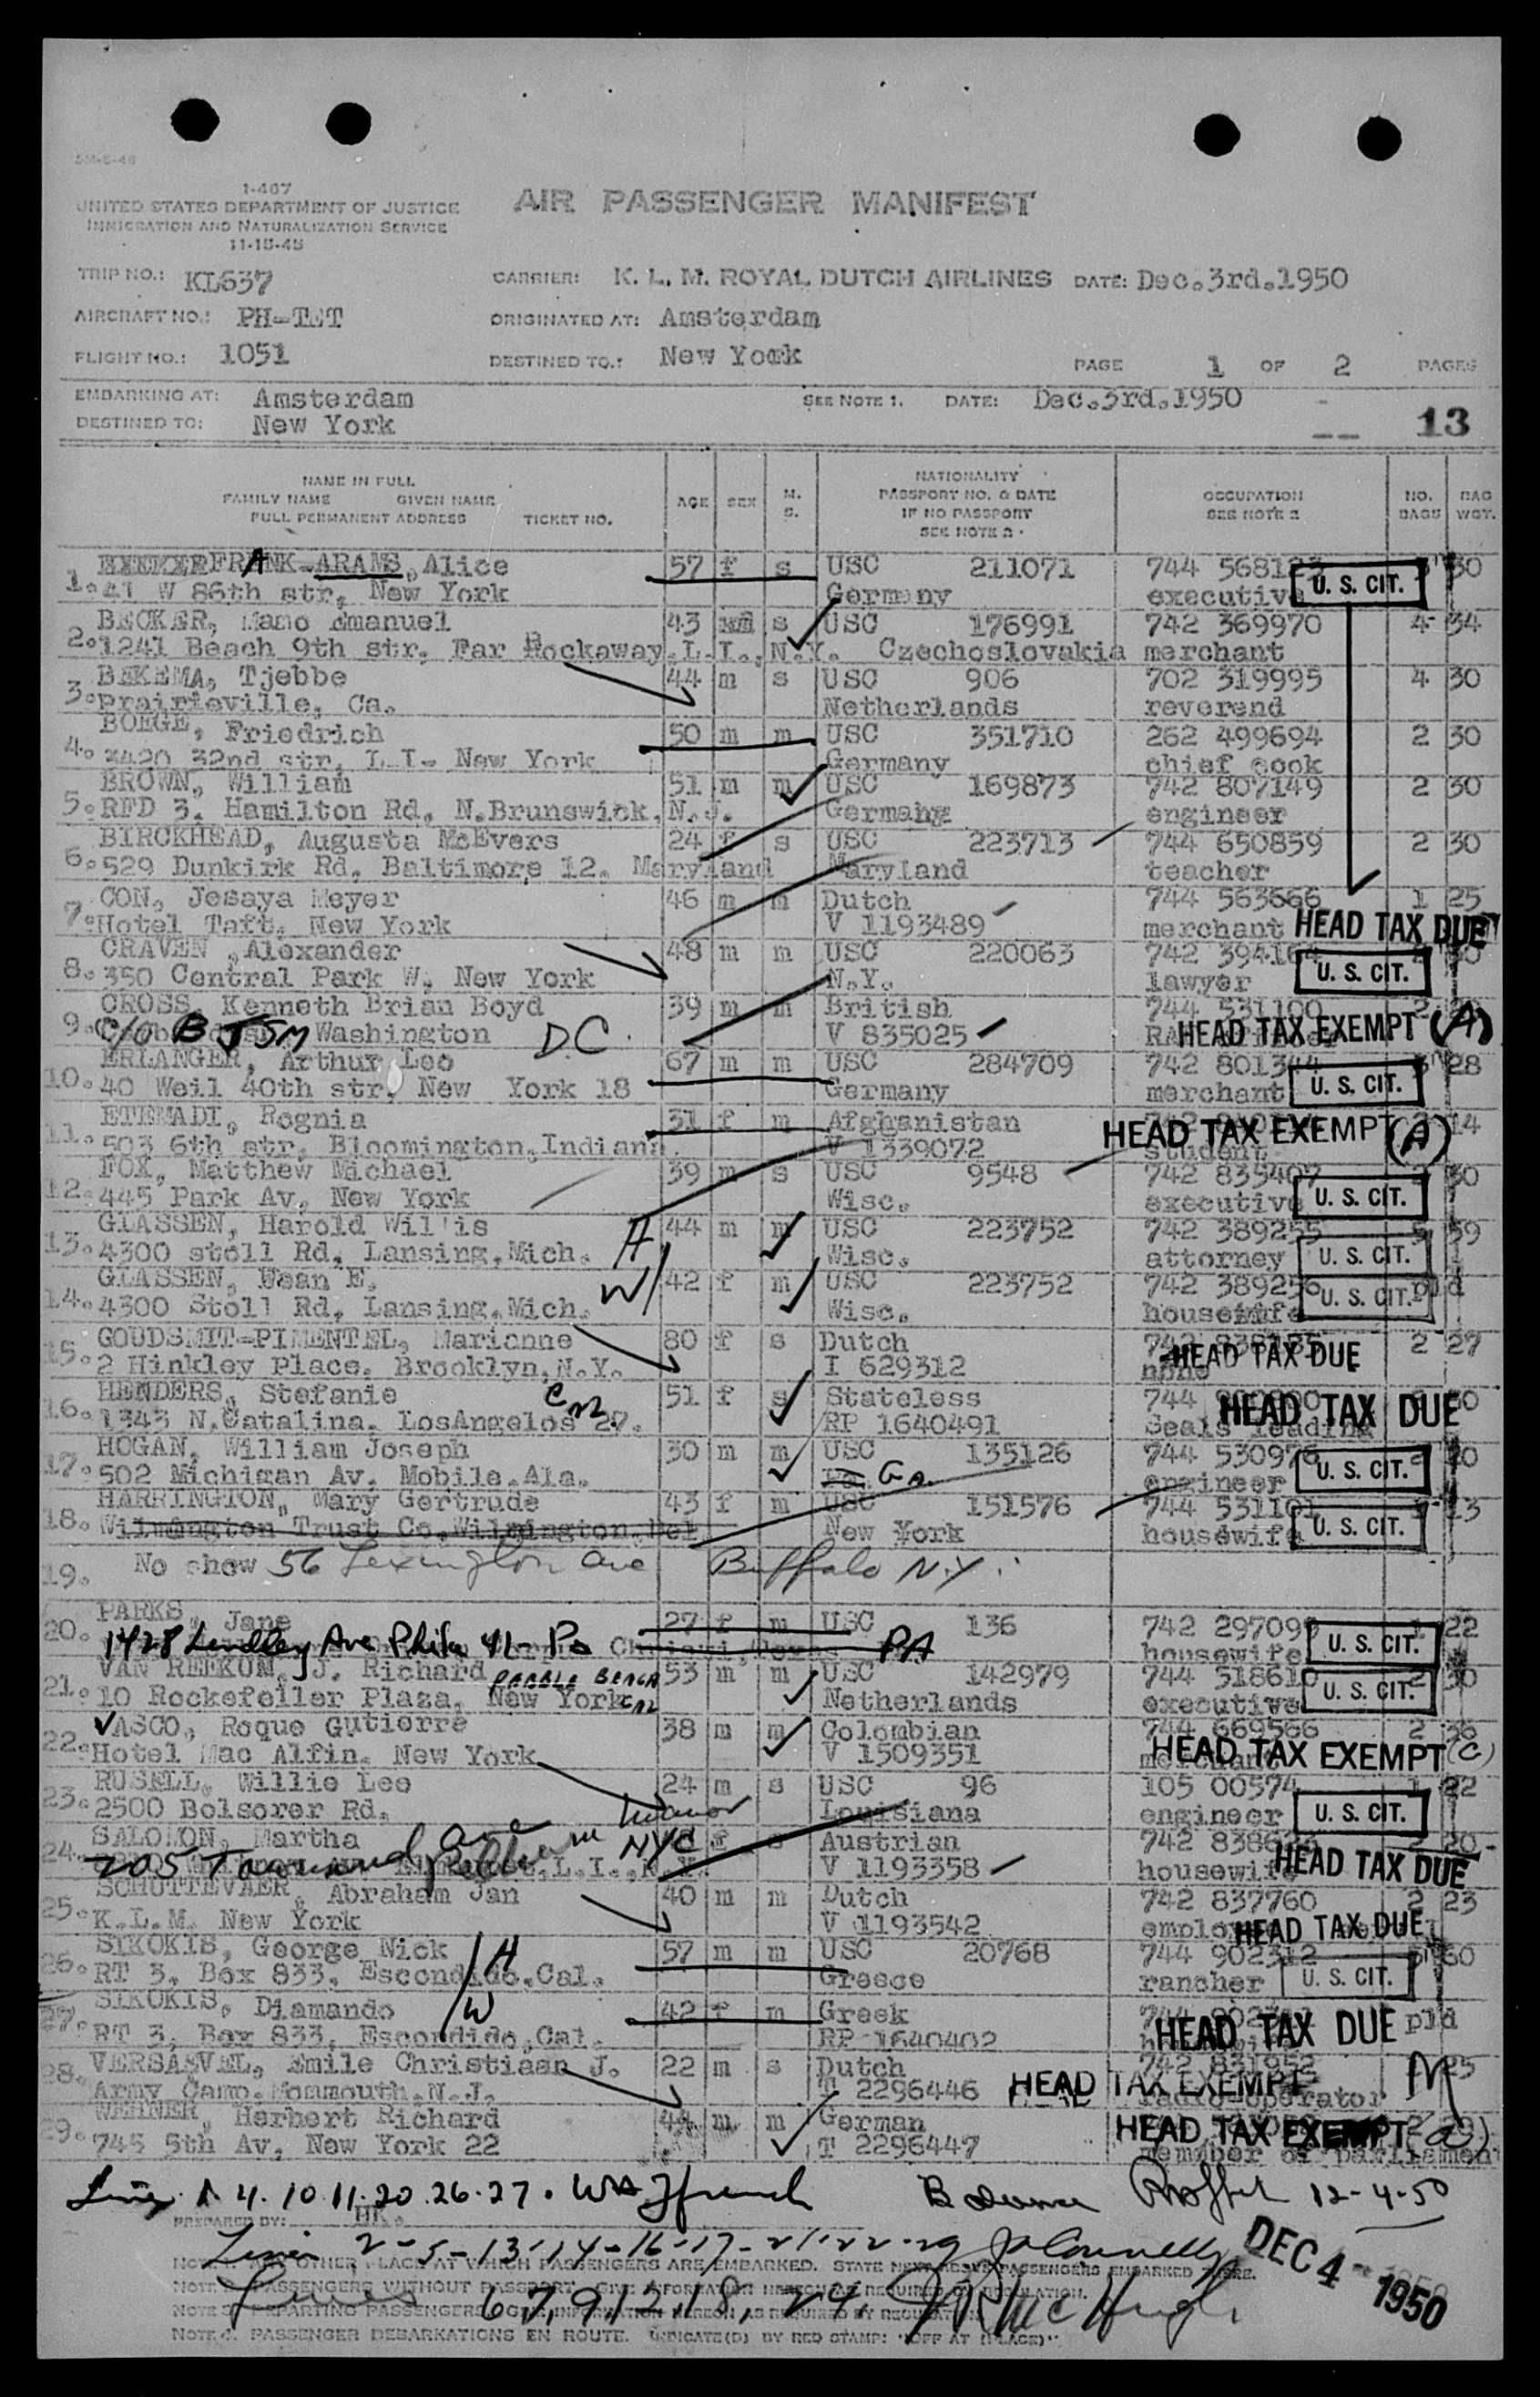 5M-6-46
1-467
UNITED STATES DEPARTMENT OF JUSTICE
IMMIGRATION AND NATURALIZATION SERVICE
11-15-45
AIR PASSENGER MANIFEST
TRIP NO.: KL637 CARRIER: K. L. M. ROYAL DUTCH AIRLINES DATE: Dec.3rd.1950
AIRCRAFT NO.: PH-TET ORIGINATED AT: Amsterdam
FLIGHT NO.: 1051 DESTINED TO.: New York PAGE 1 OF 2 PAGES
EMBARKING AT: Amsterdam SEE NOTE 1. DATE: Dec.3rd.1950
DESTINED TO: New York 13
NAME IN FULL
FAMILY NAME GIVEN NAME
FULL PERMANENT ADDRESS TICKET NO.
AGE SEX M. S.
NATIONALITY
PASSPORT NO. & DATE
IF NO PASSPORT
SEE NOTE 2
OCCUPATION
SEE NOTE 2
NO. BAGS
BAG WGT.
FRANK-ARAMS, Alice 57 f s USC 211071 744 568123 30
1. 41 W 86th str, New York Germany executive U. S. CIT.
BECKER, Emanuel 43 s USC 176991 742 369970 4 34
2. 1241 Beach 9th str. Far Rockaway.L.I.,N.Y. Czechoslovakia merchant
BEKEMA, Tjebbe 44 m s USC 906 702 319995 4 30
3. Prairieville, Ca. Netherlands reverend
BOEGE, Friedrich 50 m m USC 351710 262 499694 2 30
4. 3420 32nd str, L.I- New York Germany chief cook
BROWN, William 51 m m USC 169873 742 807149 2 30
5. RFD 3. Hamilton Rd, N.Brunswick,N.J. Germany engineer
BIRCKHEAD, Augusta McEvers 24 f s USC 223713 744 650859 2 30
6. 529 Dunkirk Rd, Baltimore 12. Maryland Maryland teacher
CON, Jesaya Meyer 46 m m Dutch 744 563666 1 25
7. Hotel Taft, New York V 1193489 merchant HEAD TAX DUE
CRAVEN ,Alexander 48 m m USC 220063 742 394164 30
8. 350 Central Park W, New York N.Y. lawyer U. S. CIT.
CROSS, Kenneth Brian Boyd 39 m m British 744 531100 2
9. C/O B JSM Washington D.C. V 835025 HEAD TAX EXEMPT (A)
ERLANGER, Arthur Leo 67 m m USC 284709 742 801344 28
10. 40 Weil 40th str, New York 18 Germany merchant U. S. CIT.
ETEMADI, Rognia 31 f m Afghanistan 14
11. 503 6th str, Bloomington,Indiana. V 1339072 student HEAD TAX EXEMPT (A)
FOX, Matthew Michael 39 m s USC 9548 742 835407 30
12. 445 Park Av, New York Wisc. executive U. S. CIT.
GLASSEN, Harold Willis H 44 m m USC 223752 742 389255 5 59
13. 4300 stoll Rd, Lansing,Mich. Wisc. attorney U. S. CIT.
GLASSEN, Jean E. W 42 f m USC 223752 742 389256 pld
14. 4300 Stoll Rd, Lansing,Mich. Wisc. housewife U. S. CIT.
GOUDSMIT-PIMENTEL, Marianne 80 f s Dutch 2 27
15. 2 Hinkley Place, Brooklyn,N.Y. I 629312 none HEAD TAX DUE
HENDERS, Stefanie 51 f s Stateless 744
16. 1343 N.Catalina. LosAngelos 27. Cal. RP 1640491 HEAD TAX DUE
HOGAN, William Joseph 30 m m USC 135126 744 530976 20
17. 502 Michigan Av, Mobile.Ala. Ga. engineer U. S. CIT.
HARRINGTON, Mary Gertrude 43 f m USC 151576 744 531101 13
18. Wilmington Trust Co.Wilmington.Del New York housewife U. S. CIT.
19. No show 56 Lexington Ave Buffalo N.Y.
PARKS, Jane 27 f m USC 136 742 297095 1 22
20. 1428 Lindley Ave Phila 41- Pa PA housewife U. S. CIT.
VAN REEKUM, J. Richard 53 m m USC 142979 744 518610 2 30
21. 10 Rockefeller Plaza, New York PEBBLE BEACH CAL Netherlands executive U. S. CIT.
VASCO, Roque Gutierre 38 m m Colombian 744 669566 2 36
22. Hotel Mac Alfin. New York V 1509351 merchant HEAD TAX EXEMPT (C)
RUSELL, Willie Leo 24 m s USC 96 105 00574 1 22
23. 2500 Bolsorer Rd. Louisiana engineer U. S. CIT.
SALOMON, Martha f s Austrian 742 2 20
24. 205 Townsend Ave Pelham Manor NYC V 1193358 housewife HEAD TAX DUE
SCHUTTEVAER, Abraham Jan 40 m m Dutch 742 837760 2 23
25. K.L.M. New York V 1193542 HEAD TAX DUE
SIKOKIS, George Nick H 57 m m USC 20768 744 902312 60
26. RT 3, Box 833, Escondido,Cal. Greece rancher U. S. CIT.
SIKOKIS, Diamando W 42 f m Greek pld
27. RT 3, Box 833, Escondido,Cal. RP 1640402 HEAD TAX DUE
VERSAEVEL, Emile Christiaan J. 22 m s Dutch 742 831952 25
28. Army Camp.Mommouth.N.J. T 2296446 radio-operator HEAD TAX EXEMPT
WEHNER, Herbert Richard 44 m m German
29. 745 5th Av, New York 22 T 2296447 member of parliament HEAD TAX EXEMPT
Lines 1. 4. 10. 11. 20. 26. 27. 12-4-50
PREPARED BY: HK.
Lines 2-5-13-14-16-17-21-22-29 J Connelly DEC 4 1950
Lines 6,7,9,12,18,24. McHugh
NOTE 4. PASSENGER DEBARKATIONS EN ROUTE. INDICATE(D) BY RED STAMP: "OFF AT (PLACE)"